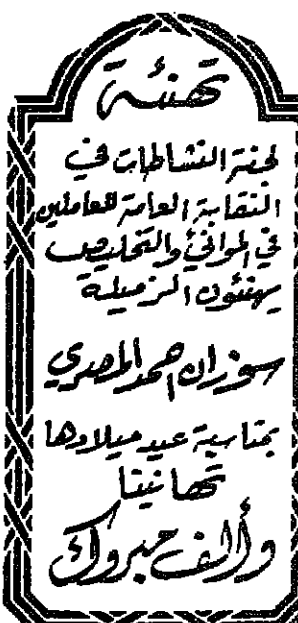 تهنئة
لجنة النشاطات في
النقابة العامة للعاملين
في الموانئ والتخليص
يهنئون الزميلة
سوزان احمد المصري
بمناسبة عيد ميلادها
تهانينا
وألف مبروك